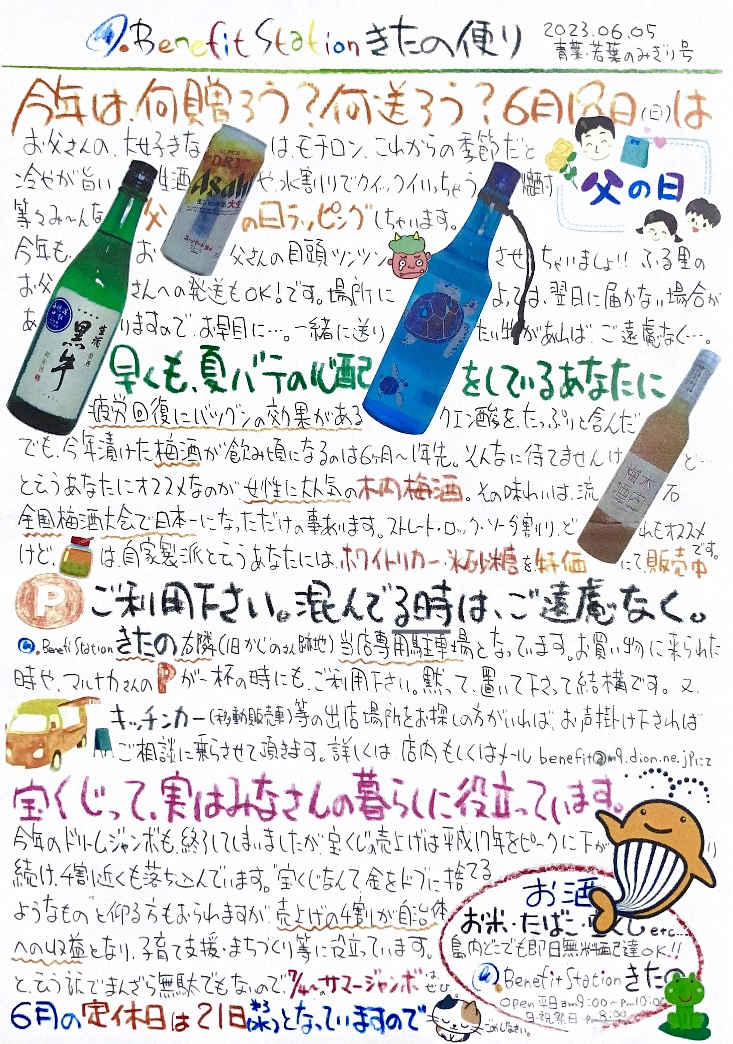 Benefit Station きたの便り
2023.06.05
青葉・若葉のみぎり号
今年は、何贈ろう?何送ろう?6月18日(日)は
お父さんの、大好きな は、モチロン、これからの季節だと
父の日
冷やが旨い 生酒 や、水割りでクイックイいっちゃう 焼酎
等々み〜んな 父の日ラッピングしちゃいます。
今年も、お父さんの目頭ツンツン させちゃいましょ!! ふる里の
お父さんへの発送もOK!です。場所によっては、翌日に届かない場合が
ありますので、お早目に…。一緒に送りたい物があれば、ご遠慮なく…。
SUPER
DRY
Asahi
生
黒牛
早くも、夏バテの心配をしているあなたに
疲労回復にバツグンの効果があるクエン酸を、たっぷりと含んだ
でも、今年漬けた梅酒が飲み頃になるのは6ヶ月〜1年先。そんなに待てませんけど…
と言うあなたにオススメなのが、女性に大人気の木内梅酒。その味わいは、流石
全国梅酒大会で日本一になっただけの事あります。ストレート・ロック・ソーダ割り、どれもオススメです。
けど、 は、自家製派と言うあなたには、ホワイトリカー・氷砂糖を特価にて販売中
木内梅酒
P ご利用下さい。混んでる時は、ご遠慮なく。
Benefit Station きたの右隣(旧かじのさん跡地)当店専用駐車場となっています。お買い物に来られた
時や、マルナカさんのPが一杯の時にも、ご利用下さい。黙って、置いて下さって結構です。又、
キッチンカー(移動販売車)等の出店場所をお探しの方がいれば、お声掛け下されば
ご相談に乗らせて頂きます。詳しくは、店内もしくはメール benefit@m9.dion.ne.jpにて
宝くじって、実はみなさんの暮らしに役立っています。
今年のドリームジャンボも、終了してしまいましたが、宝くじの売上げは平成17年をピークに下がり
続け、4割近くも落ち込んでいます。"宝くじなんて、金をドブに捨てる
ようなもの"と仰る方もおられますが、売上げの4割が自治体
への収益となり、子育て支援・まちづくり等に役立っています。
と、言う訳でまんざら無駄でもないので、7/4〜のサマージャンボはぜひ
6月の定休日は21日(水)となっていますので
ごめんなさい。
お酒
お米・たばこ・宝くじetc…
島内どこでも即日無料配達OK!!
Benefit Station きたの
open 平日am9:00〜pm10:00
日・祝祭日 〜pm8:00